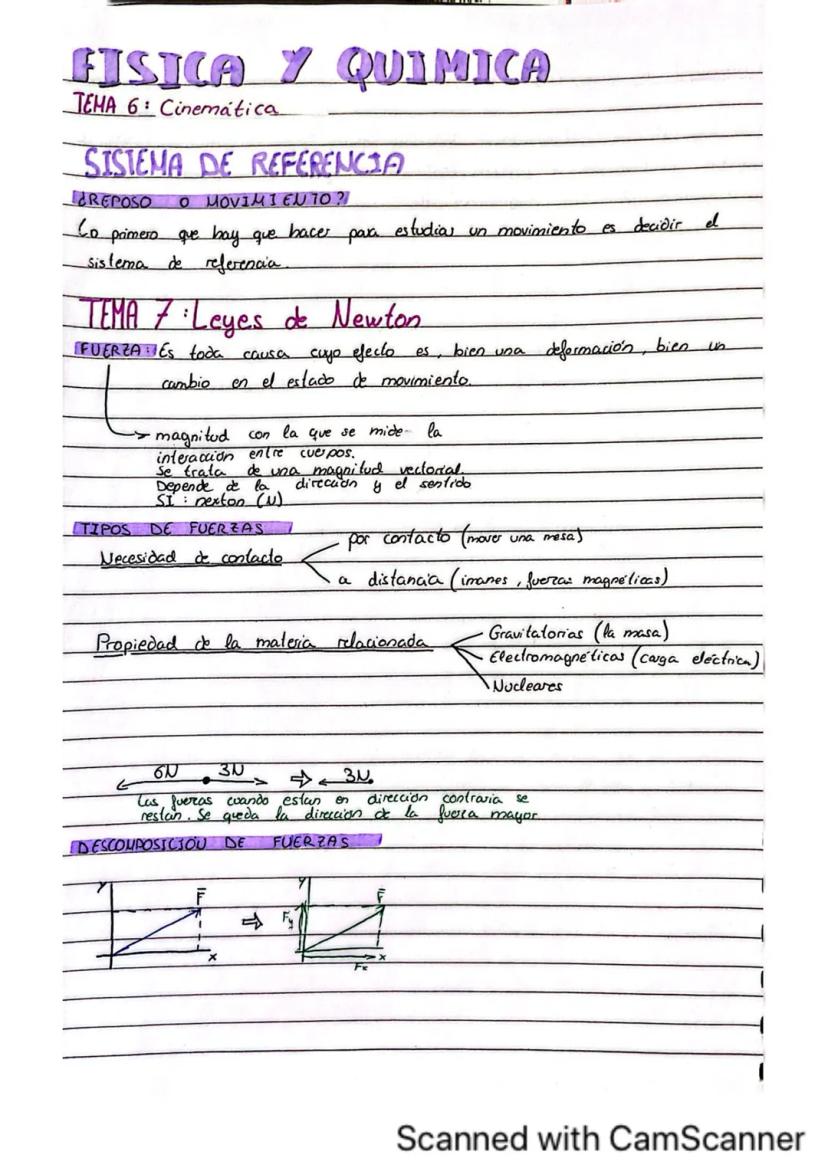 FISICA Y QUIMICA
TEMA 6: Cinemática
SISTEMA DE REFERENCIA
¿REPOSO O MOVIMIENTO?
Lo primero que hay que hacer para estudiar un movimiento es decidir el
sistema de referencia.
TEMA 7: Leyes de Newton
FUERZA: Es toda causa cuyo efecto es, bien una deformación, bien un
cambio en el estado de movimiento.
magnitud con la que se mide la
interacción entre cuerpos.
Se trata de una magnitud vectorial.
Depende de la dirección y el sentido
SI: newton (N)
TIPOS DE FUERZAS
Necesidad de contacto
por contacto (mover una mesa)
a distancia (imanes, fuerzas magnéticas)
Propiedad de la materia relacionada
Gravitatorias (la masa)
Electromagnéticas (carga eléctrica)
Nucleares
6N 3N ⇒ 3N
Las fuerzas cuando estan en dirección contraria se
restan. Se queda la dirección de la fuerza mayor
DESCOMPOSICIÓN DE FUERZAS
y F x ⇒ y Fy F x Fx
Scanned with CamScanner